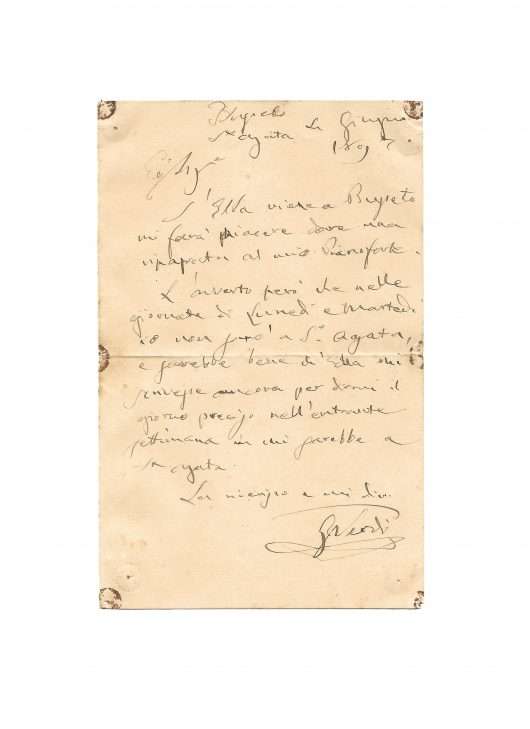 Busseto
S.ta Agata 4 Giugno
189
Eg. Sig.e
S'Ella viene a Busseto
mi farà piacere dare una
ripassata al mio Pianoforte.
L'avverto però che nelle
giornate di Lunedì e Martedì
io non sarò a S.ta Agata,
e sarebbe bene ch'Ella mi
scrivesse ancora per dirmi il
giorno preciso nell'entrante
settimana in cui sarebbe a
S.ta Agata.
Con a mi dico
G Verdi